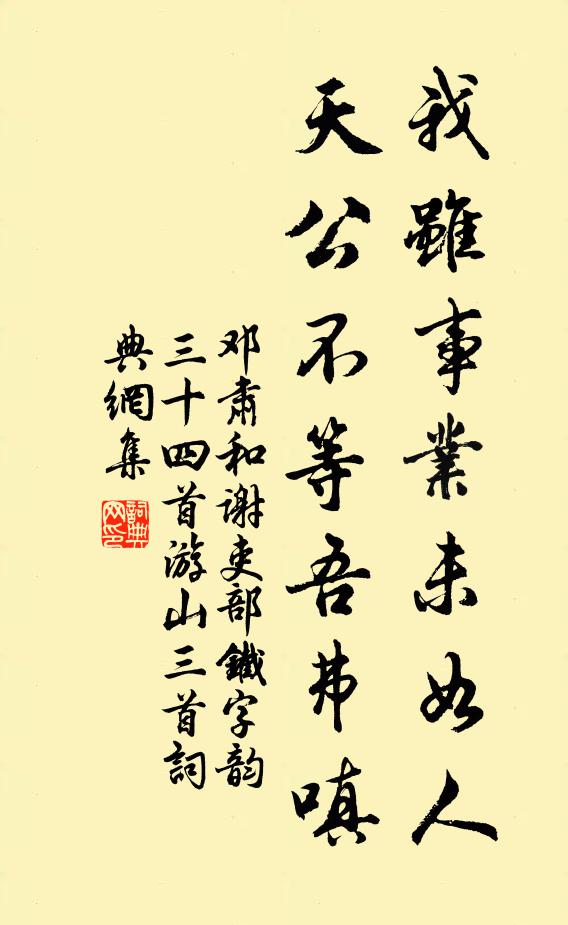 我雖事業未如人
天公不等吾弗嗔
邓肅和谢吏部鐵字韵
三十四首游山三首詞
典網集
詞典
网印